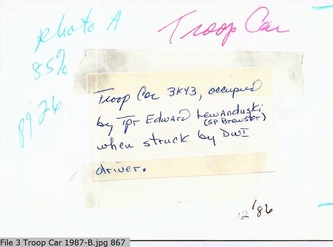 photo A
85%
8926
Troop Car
Troop Car 3K43, occupied
by Tpr Edward Lewanduski
(SP Brewster)
when struck by DWI
driver.
12/86
File 3 Troop Car 1987-B.jpg 867